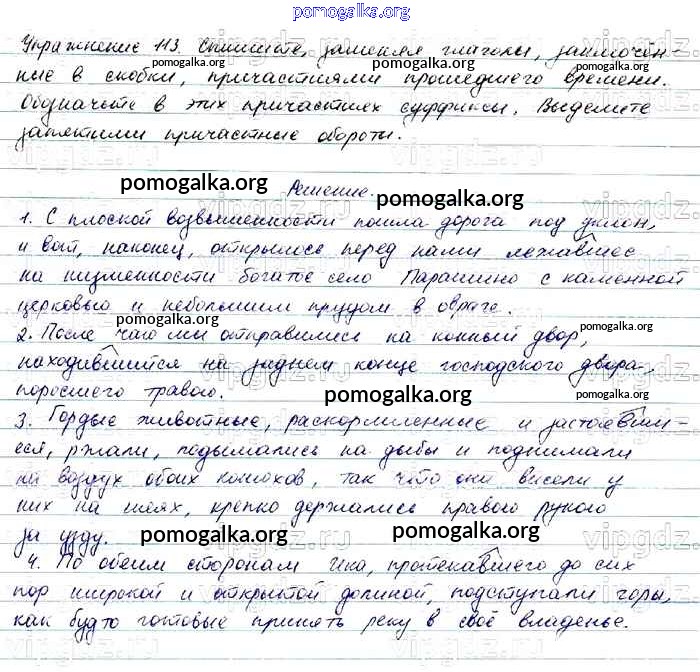 pomogalka.org
Упражнение 113. Спишите, заменяя глаголы, заключён-
ные в скобки, причастиями прошедшего времени.
Обозначьте в этих причастиях суффиксы. Выделите
запятыми причастные обороты.
Решение.
1. С плоской возвышенности пошла дорога под уклон,
и вот, наконец, открылось перед нами лежавшее
на низменности богатое село Парашино с каменной
церковью и небольшим прудом в овраге.
2. После чаю мы отправились на конный двор,
находившийся на заднем конце господского двора,
поросшего травою.
3. Гордые животные, раскормленные и застоявши-
еся, ржали, подымались на дыбы и поднимали
на воздух обоих конюхов, так что они висели у
них на шеях, крепко держались правого рукою
за узду.
4. По обеим сторонам Ика, протекавшего до сих
пор широкой и открытой долиной, подступали горы,
как будто готовые принять реку в своё владенье.